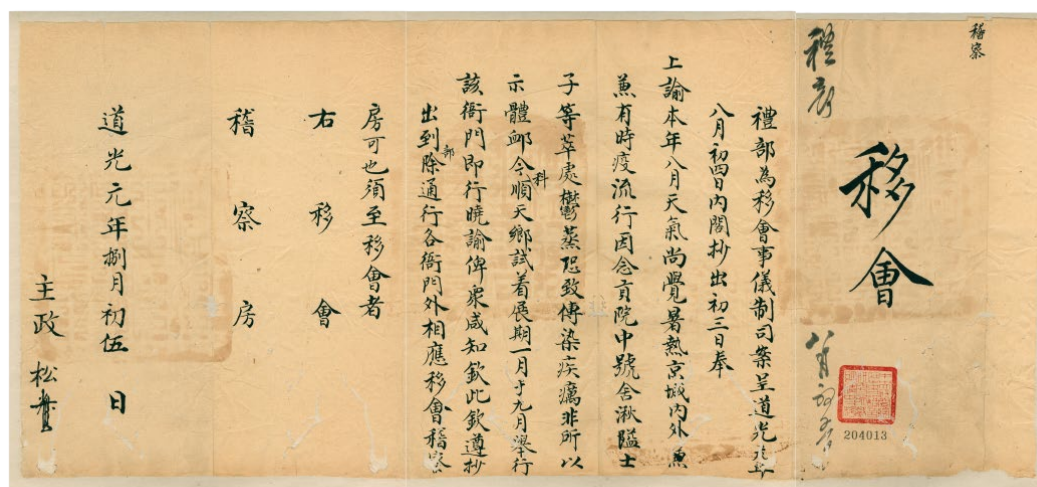 稽察
移會
204013
禮部為移會事儀制司案呈道光元年
八月初四日內閣抄出初三日奉
上諭本年八月天氣尚覺暑熱京城內外兼
兼有時疫流行因念貢院中號舍湫隘士
子等萃處鬱蒸恐致傳染疾癘非所以
示體卹今科順天鄉試着展期一月于九月舉行
該衙門即行曉諭俾眾咸知欽此欽遵抄
出到部除通行各衙門外相應移會稽察
房可也須至移會者
右移會
稽察房
道光元年捌月初伍日
主政松